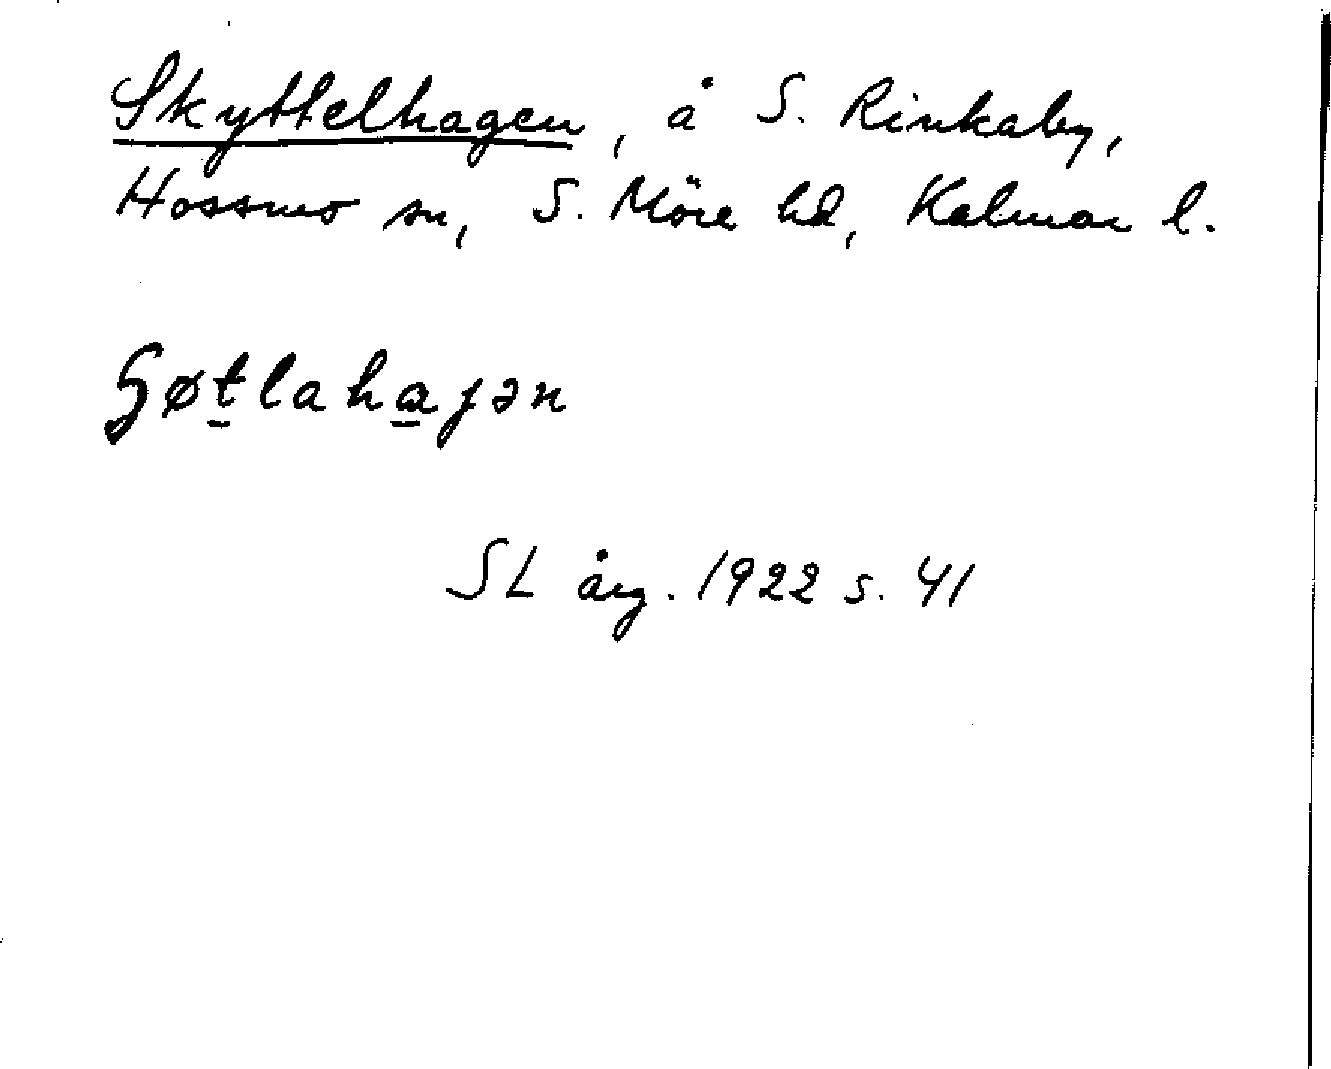 Skyttelhagen, å S. Rinkaby,
Hossmo sn, S. Möre hd, Kalmar l.
ʃøt̲laha̲ɟən
SL årg. 1922 s. 41